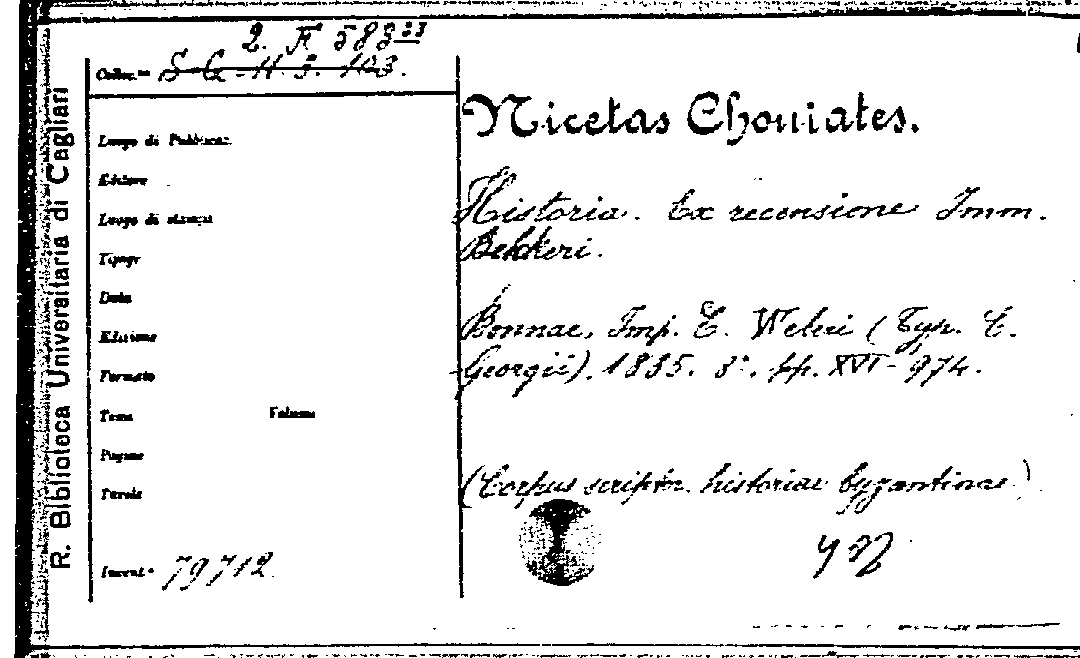 2. F 583²³
Colloc.ne S. G. H. 5. 123.
R. Biblioteca Universitaria di Cagliari
Luogo di Pubblicaz.
Editore
Luogo di stampa
Tipogr
Data
Edizione
Formato
Tomo Volume
Pagine
Tavole
Invent.° 79712
Nicetas Choniates.
Historia. Ex recensione Imm.
Bekkeri.
Bonnae, Imp. E. Weberi (Typ. C.
Georgii). 1835. 8°. pp. XVI-974.
(Corpus scriptor. historiae byzantinae)